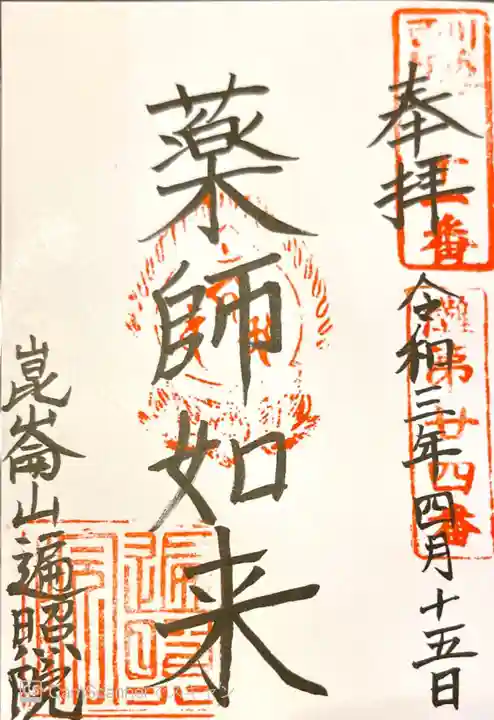 奉拝
令和三年四月十五日
第廿四番
薬師如来
崑崙山遍照院